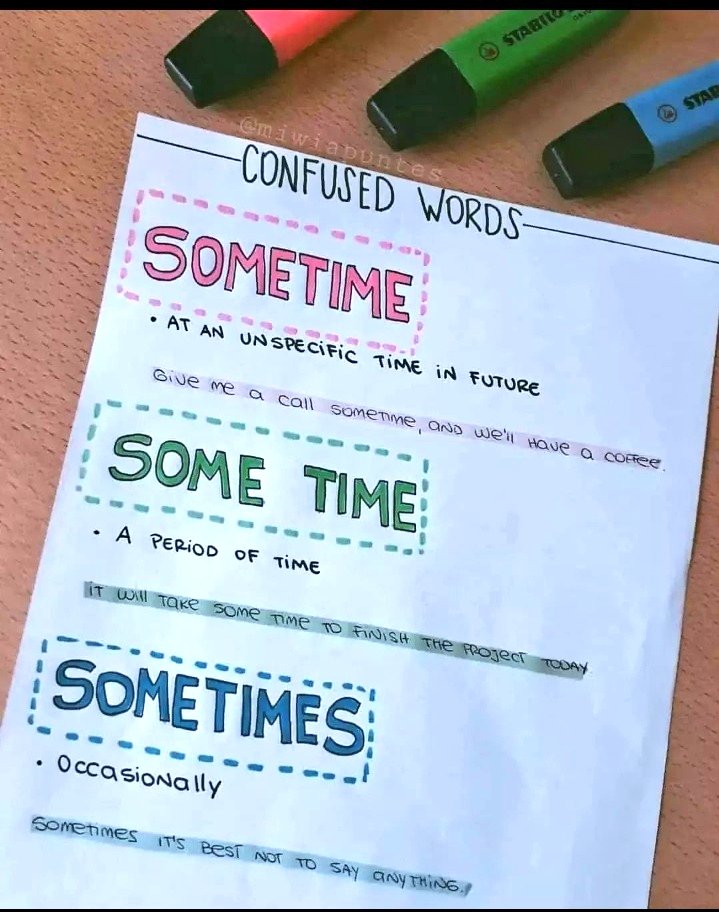 STABILO
STAB
@miwiapuntes
CONFUSED WORDS
SOMETIME
• AT AN UNSPECIFIC TIME IN FUTURE
GIVE ME A CALL SOMETIME, AND WE'll HAVE A COFFEE.
SOME TIME
• A PERIOD OF TIME
IT WILL TAKE SOME TIME TO FINISH THE PROJECT TODAY
SOMETIMES
• Occasionally
Sometimes IT'S BEST NOT TO SAY ANYTHING.